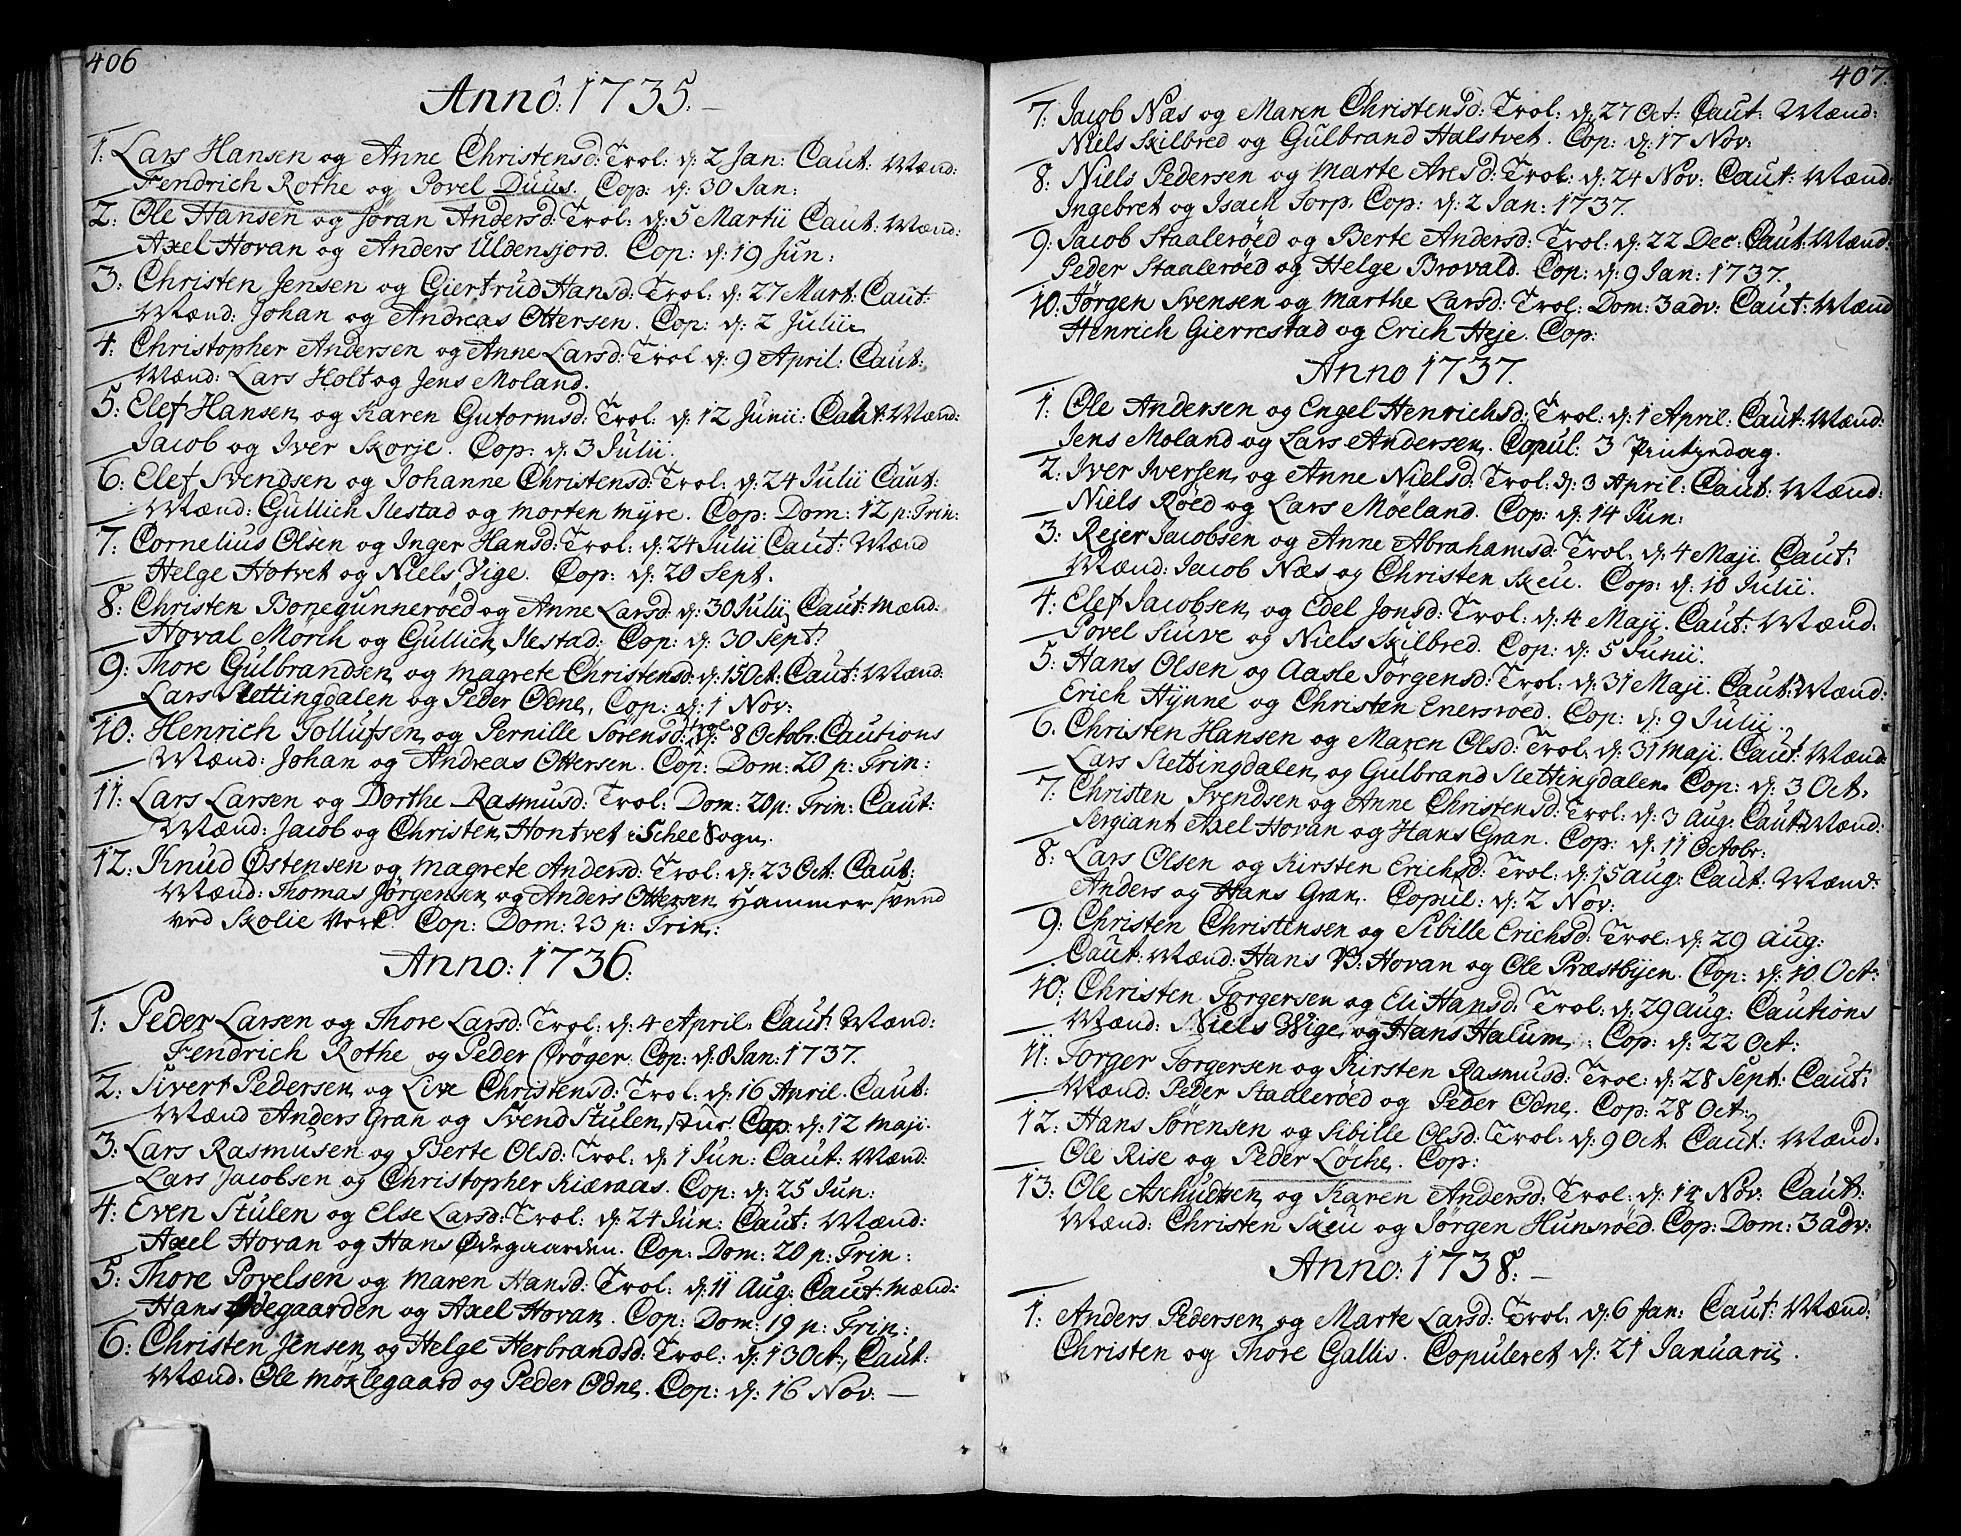 406
Anno: 1735.
1. Lars Hansen og Anne Christensd: Trol: d: 2 Jan: Caut: Mænd:
Fendrich Rothe og Povel Duus. Cop: d: 30 Jan:
2. Ole Hansen og Jøran Andersd: Trol: d: 5 Martii Caut: Mænd:
Axel Hovan og Anders Uldensjord. Cop: d: 19 Jun:
3. Christen Jensen og Giertrud Hansd: Trol: d: 27 Mart: Caut:
Mænd: Johan og Andreas Ottersen. Cop: d: 2 Julii
4. Christopher Andersen og Anne Larsd: Trol d: 9 April: Caut:
Mænd: Lars Holt og Jens Moland.
5: Elef Hansen og Karen Gutormsd: Trol: d: 12 Junii: Caut: Mænd:
Jacob og Iver Skorje. Cop: d: 3 Julii.
6: Elef Svendsen og Johanne Christensd: Trol: d: 24 Julii Caut:
Mænd: Gullich Ilestad og Morten Myre. Cop: Dom: 12 p: Trin:
7: Cornelius Olsen og Inger Hansd: Trol: d: 24 Julii Caut: Mænd
Helge Hotvet og Niels Vige. Cop: d: 20 Sept.
8: Christen Bonegunnerøed og Anne Larsd: d: 30 Julii Caut: Mænd:
Hoval Mörch og Gullich Ilestad: Cop: d: 30 Sept:
9: Thore Gulbrandsen og Magrete Christensd: d: 15 Oct: Caut: Mænd:
Lars Slettingdalen og Peder Odne. Cop: d: 1 Nov:
10: Henrich Tollufsen og Pernille Sörensd: Trol: d: 8 Octobr: Cautions
Mænd: Johan og Andreas Ottersen. Cop: Dom: 20 p: Trin:
11: Lars Larsen og Dorthe Rasmusd: Trol: Dom: 20 p: Trin: Caut:
Mænd: Jacob og Christen Hontvet i Schee Sogn.
12. Knud Østensen og Magrete Andersd: Trol: d: 23 Oct: Caut:
Mænd: Thomas Jørgensen og Anders Ottersen Hammer Svend
ved Skolie Verk. Cop: Dom: 23 p: Trin:
Anno: 1736.
1: Peder Larsen og Thore Larsd: Trol: d: 4 April: Caut: Mænd:
Fendrich Rothe og Peder Crøger. Cop: d: 8 Jan: 1737.
2: Sivert Pedersen og Live Christensd: Trol: d: 16 April. Caut:
Mænd Anders Gran og Svend Stulen Cop: d: 12 Maji.
3: Lars Rasmusen og Berte Olsd: Trol: d: 1 Jun: Caut: Mænd:
Lars Jacobsen og Christopher Kiæraas. Cop: d: 25 Jun:
4: Even Stulen og Else Larsd: Trol: d: 24 Jun: Caut: Mænd:
Axel Hovan og Hans Ødegaarden. Cop: Dom: 20 p: Trin:
5: Thore Povelsen og Maren Hansd: Trol: d: 11 Aug: Caut: Mænd:
Hans Ødegaarden og Axel Hovan. Cop: Dom: 19 p: Trin:
6: Christen Jensen og Helge Herbrandsd: Trol: d: 13 Oct: Caut:
Mænd. Ole Möxlegaard og Peder Odne. Cop: d: 16 Nov:
407.
7: Jacob Næs og Maren Christensd: Trol: d: 27 Oct: Caut: Mænd:
Niels Skilbred og Gulbrand Halstvet. Cop: d: 17 Nov:
8: Niels Pedersen og Marte Aresd: Trol: d: 24 Nov: Caut: Mænd:
Ingebret og Isach Torp. Cop: d: 2 Jan: 1737.
9: Jacob Staalerøed og Berte Andersd: Trol: d: 22 Dec: Caut: Mænd:
Peder Staalerøed og Helge Brovald. Cop: d: 9 Jan: 1737.
10. Jørgen Svensen og Marthe Larsd: Trol: Dom: 3 adv: Caut: Mænd
Henrich Gierrestad og Erich Heje. Cop:
Anno 1737.
1: Ole Andersen og Engel Henrichsd: Trol: d: 1 April: Caut: Mænd:
Jens Moland og Lars Andersen. Copul: 3 Pintzedag.
2. Iver Iversen og Anne Nielsd: Trol: d: 3 April: Caut: Mænd:
Niels Røed og Lars Möeland. Cop: d: 14 Jun:
3: Rejer Jacobsen og Anne Abrahamsd: Trol: d: 4 Maji. Caut:
Mænd: Jacob Næs og Christen Skeu. Cop: d: 10 Julii.
4: Elef Jacobsen og Edel Jonsd: Trol: d: 4 Maji. Caut: Mænd:
Povel Suve og Niels Skilbred. Cop: d: 5 Junii.
5: Hans Olsen og Aasle Jørgensd: Trol: d: 31 Maji. Caut: Mænd:
Erich Hynne og Christen Enersrøed. Cop: d: 9 Julii.
6. Christen Hansen og Maren Olsd: Trol: d: 31 Maji. Caut: Mænd:
Lars Slettingdalen og Gulbrand Slettingdalen. Cop: d: 3 Oct.
7: Christen Svendsen og Anne Christensd: Trol: d: 3 aug: Caut: Mænd:
Sergiant Axel Hovan og Hans Gran. Cop: d: 11 Octobr:
8: Lars Olsen og Kirsten Erichsd: Trol: d: 15 aug: Caut: Mænd:
Anders og Hans Gran. Copul: d: 2 Nov:
9: Christen Christensen og Sibille Erichsd: Trol: d: 29 aug:
Caut: Mænd: Hans B: Hovan og Ole Præstbyen. Cop: d: 10 Oct:
10: Christen Torgersen og Eli Hansd: Trol: d: 29 aug: Cautions
Mænd: Niels Wige og Hans Halum. Cop: d: 22 Oct:
11: Torger Torgersen og Kirsten Rasmusd: Trol: d: 28 Sept: Caut:
Mænd: Peder Staalerøed og Peder Odne. Cop: 28 Oct:
12: Hans Sørensen og Sibille Olsd: Trol: d: 9 Oct Caut: Mænd.
Ole Rise og Peder Löche. Cop:
13: Ole Aschuelsen og Karen Andersd: Trol: d: 14 Nov: Caut:
Mænd: Christen Skeu og Jørgen Hunsrøed. Cop: Dom: 3 adv:
Anno: 1738:
1: Anders Pedersen og Marte Larsd: Trol: d: 6 Jan: Caut: Mænd:
Christen og Thore Gallis. Copuleret d: 21 Januarii.